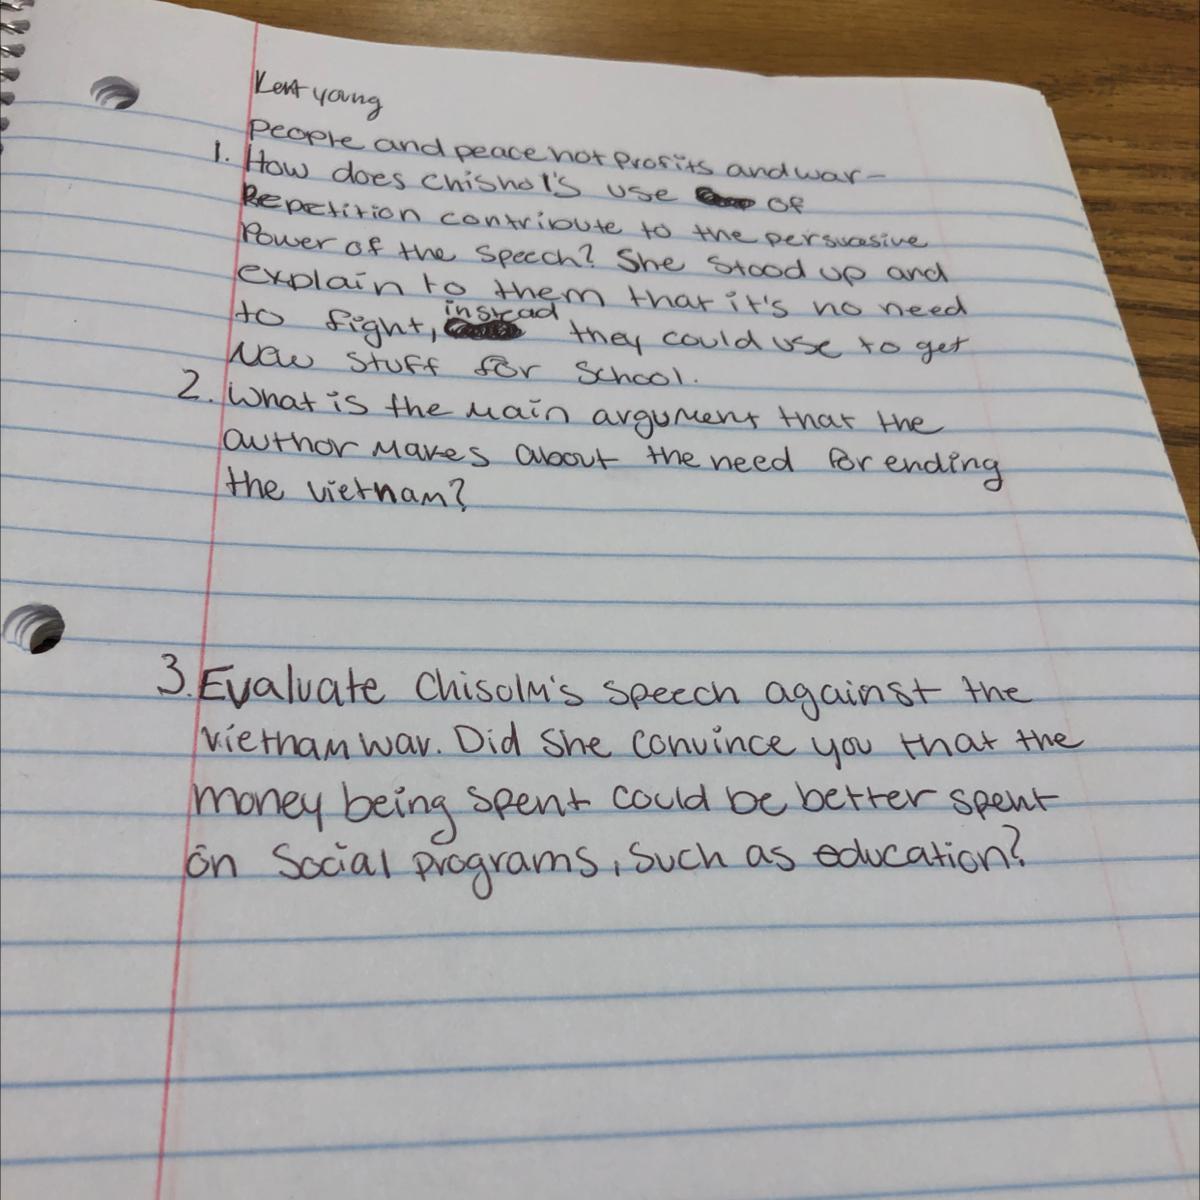 Kent young
people and peace not profits and war-
1. How does chishol's use of
Repetition contribute to the persuasive
Power of the speech? She stood up and
explain to them that it's no need
to fight, instead they could use to get
New stuff for school.
2. What is the main argument that the
author makes about the need for ending
the vietnam?
3. Evaluate Chisolm's speech against the
vietnam war. Did she convince you that the
money being spent could be better spent
on social programs, such as education?